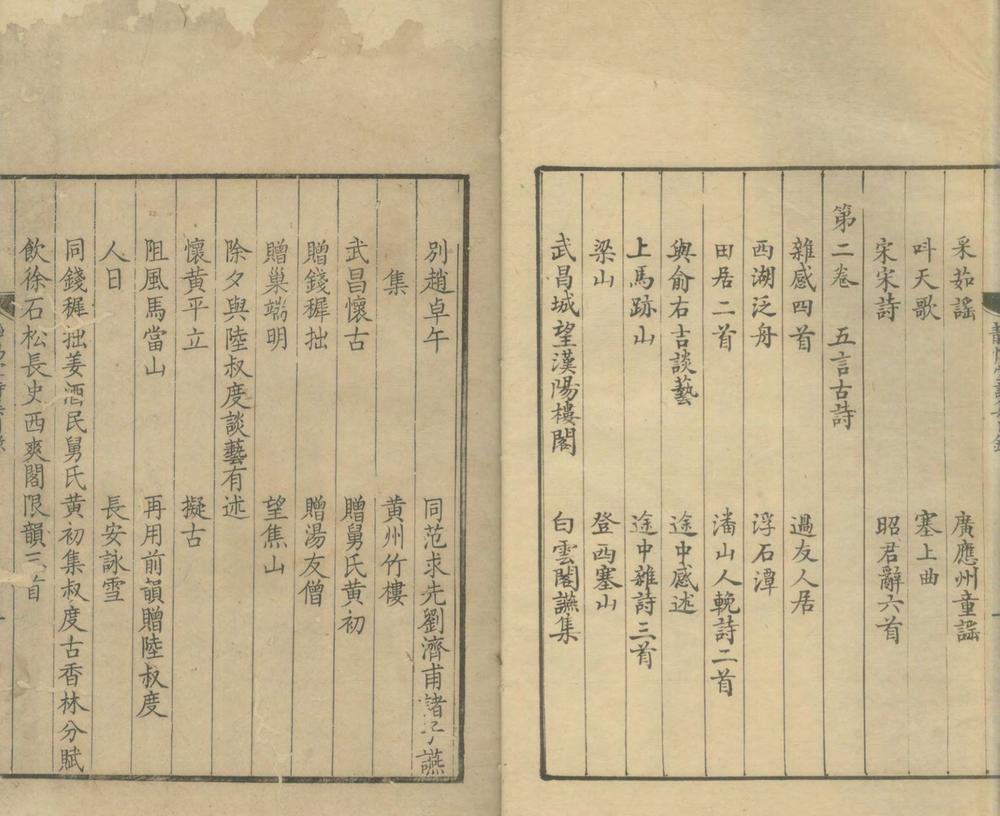 采茹謠　廣應州童謠
呌天歌　塞上曲
宋宋詩　昭君辭六首
第二卷　五言古詩
雜感四首　過友人居
西湖泛舟　浮石潭
田居二首　潘山人輓詩二首
與俞右吉談藝　途中感述
上馬跡山　途中雜詩三首
梁山　登西塞山
武昌城望漢陽樓閣　白雲閣讌集
別趙卓午　同范求先劉濟甫諸子讌
集　黃州竹樓
武昌懷古　贈舅氏黃初
贈錢穉拙　贈湯友僧
贈巢端明　望焦山
除夕與陸叔度談藝有述
懷黃平立　擬古
阻風馬當山　再用前韻贈陸叔度
人日　長安詠雪
同錢穉拙姜洒民舅氏黃初集叔度古香林分賦
飲徐石松長史西爽閣限韻三首